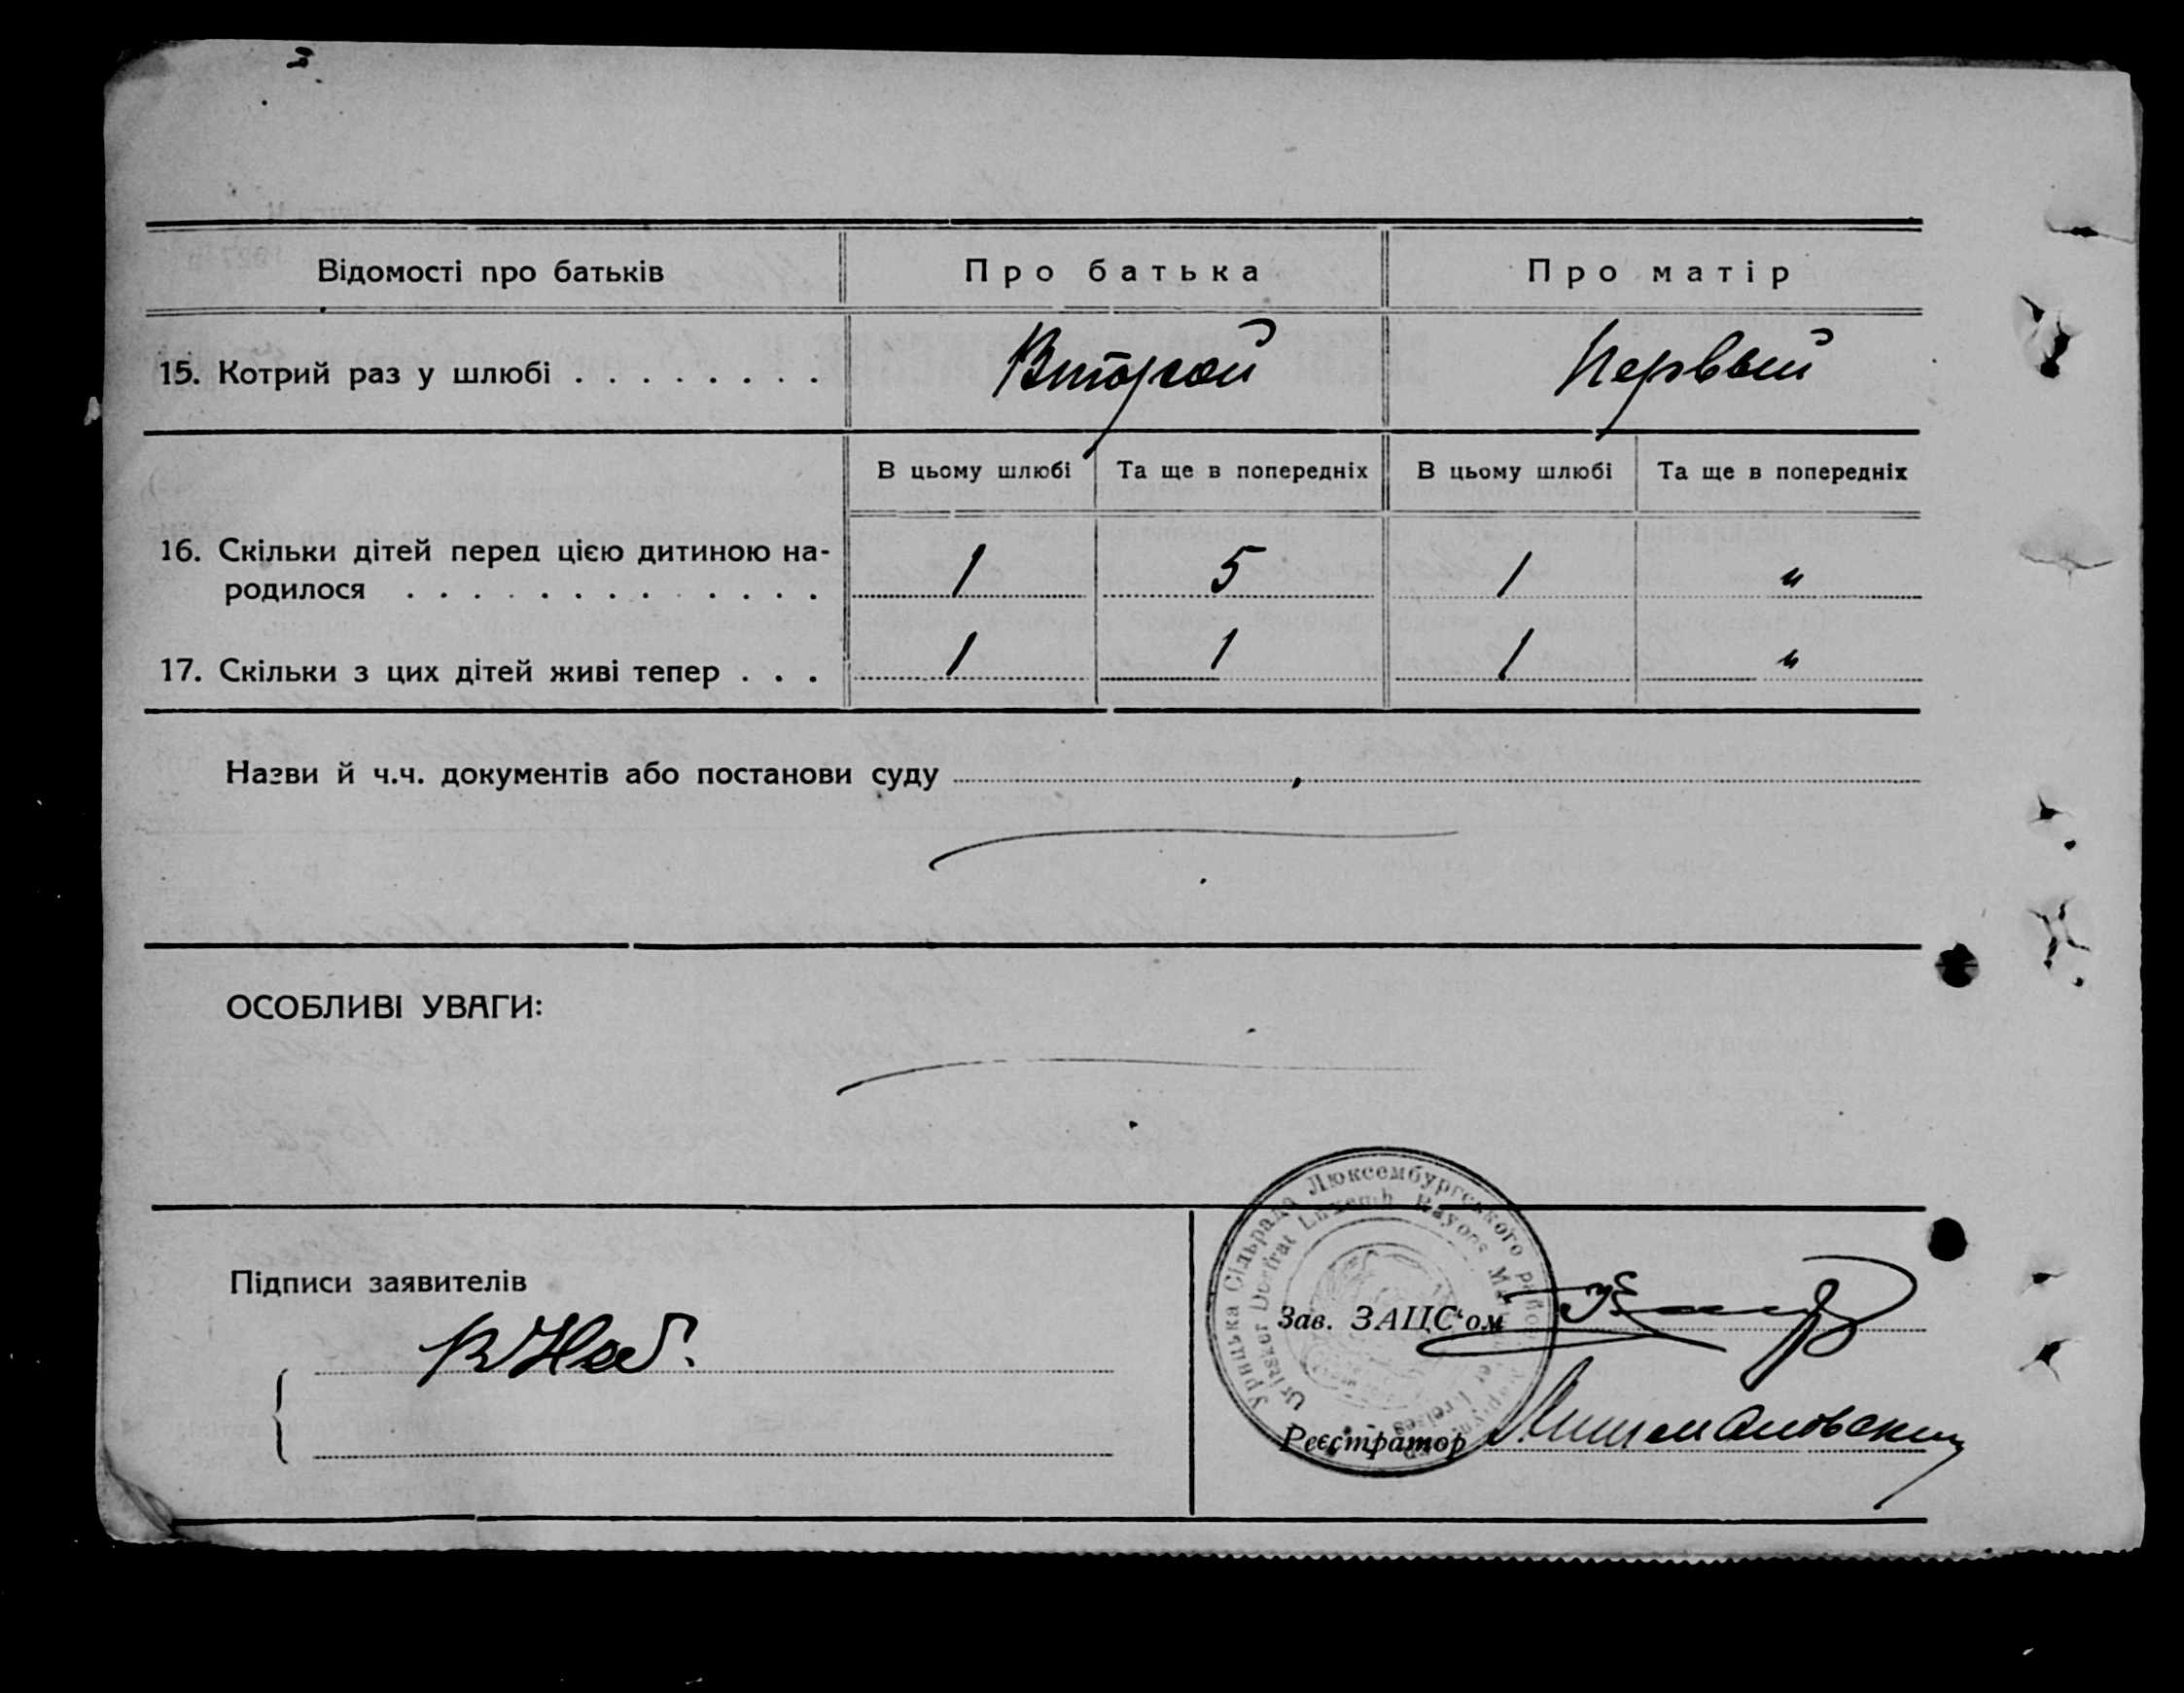 Відомості про батьків
Про батька
Про матір
15. Котрий раз у шлюбі . . . . . . . .
Второй
Первый
В цьому шлюбі
Та ще в попередніх
В цьому шлюбі
Та ще в попередніх
16. Скільки дітей перед цією дитиною на-
родилося . . . . . . . . . . . . .
1
5
1
"
17. Скільки з цих дітей живі тепер . . .
1
1
1
"
Назви й ч.ч. документів або постанови суду
ОСОБЛИВІ УВАГИ:
Урицька Сільрада Люксембургського
Dorfrat Luxemb. Rayons
Підписи заявителів
Зав. ЗАЦС'ом
Реєстратор